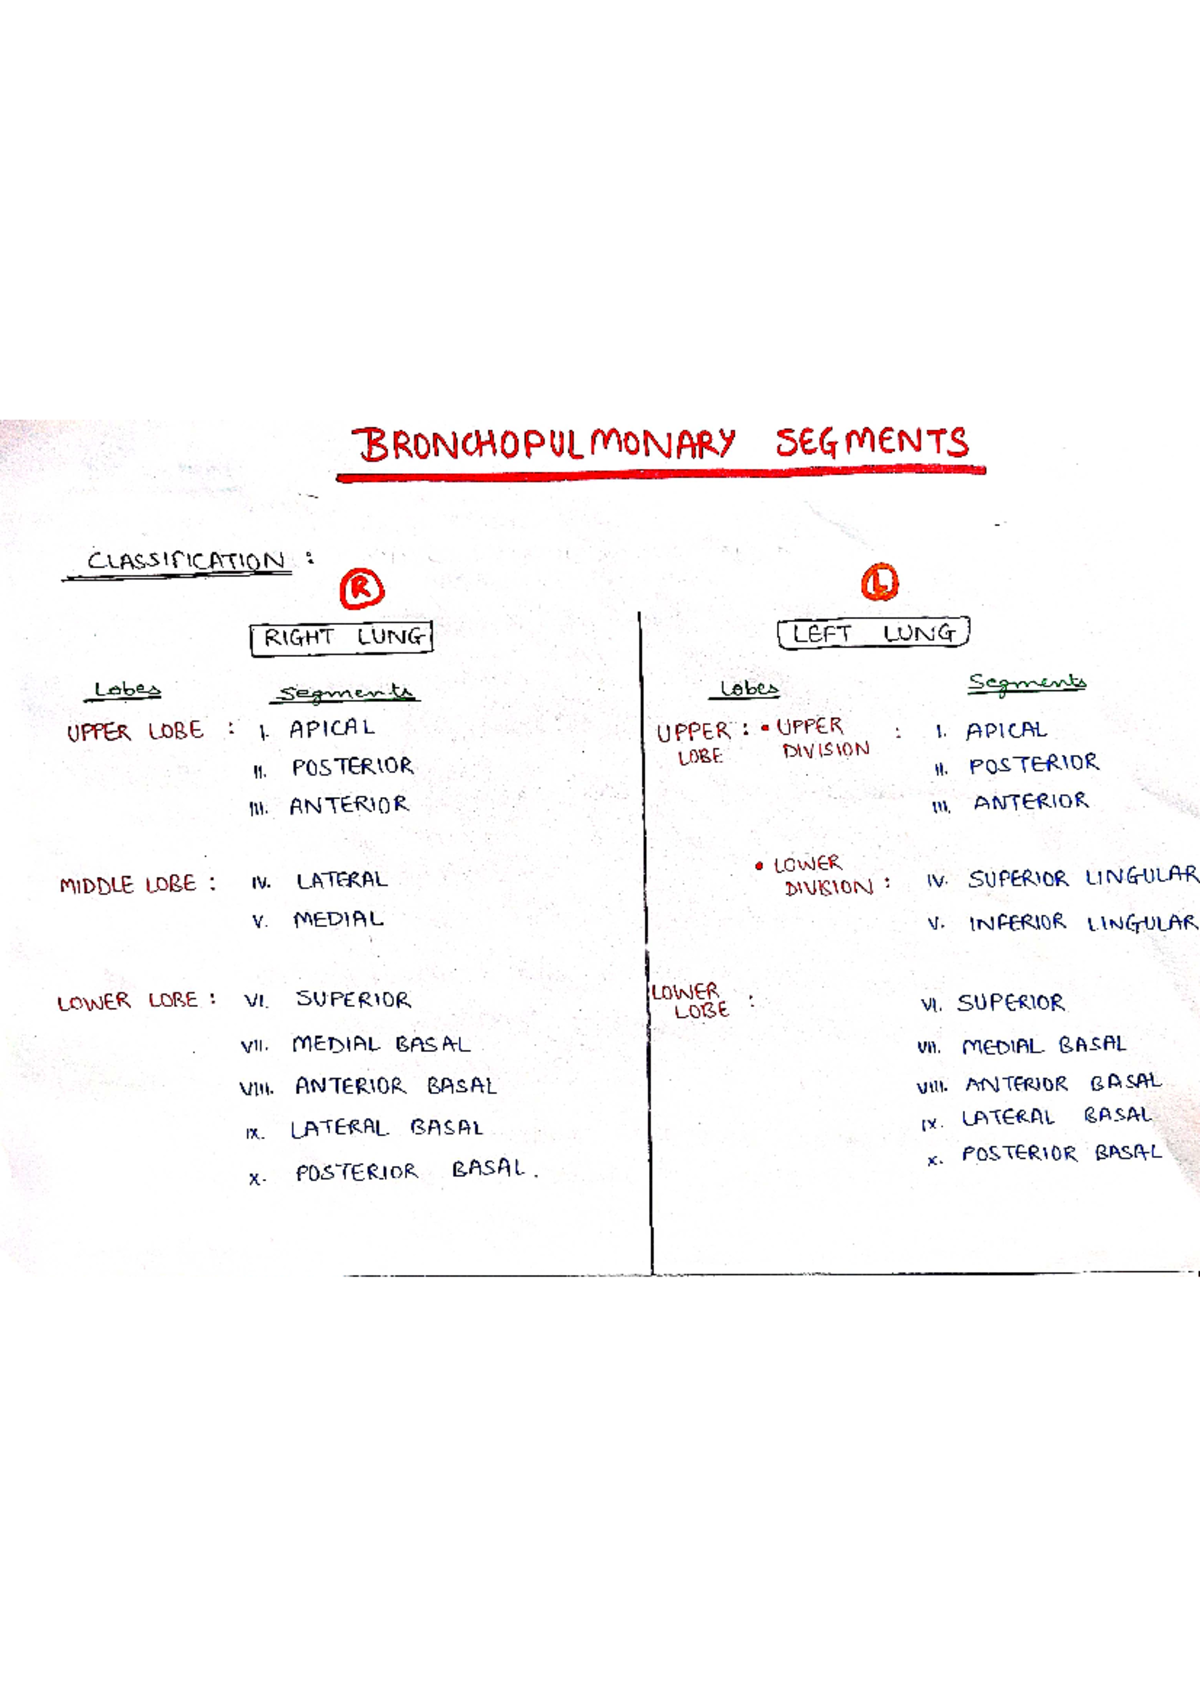 BRONCHOPULMONARY SEGMENTS
CLASSIFICATION :
R
RIGHT LUNG
Lobes Segments
UPPER LOBE : I. APICAL
II. POSTERIOR
III. ANTERIOR
MIDDLE LOBE : IV. LATERAL
V. MEDIAL
LOWER LOBE : VI. SUPERIOR
VII. MEDIAL BASAL
VIII. ANTERIOR BASAL
IX. LATERAL BASAL
X. POSTERIOR BASAL.
L
LEFT LUNG
Lobes Segments
UPPER : • UPPER : I. APICAL
LOBE DIVISION
II. POSTERIOR
III. ANTERIOR
• LOWER
DIVISION : IV. SUPERIOR LINGULAR
V. INFERIOR LINGULAR
LOWER : VI. SUPERIOR
LOBE
VII. MEDIAL BASAL
VIII. ANTERIOR BASAL
IX. LATERAL BASAL
X. POSTERIOR BASAL